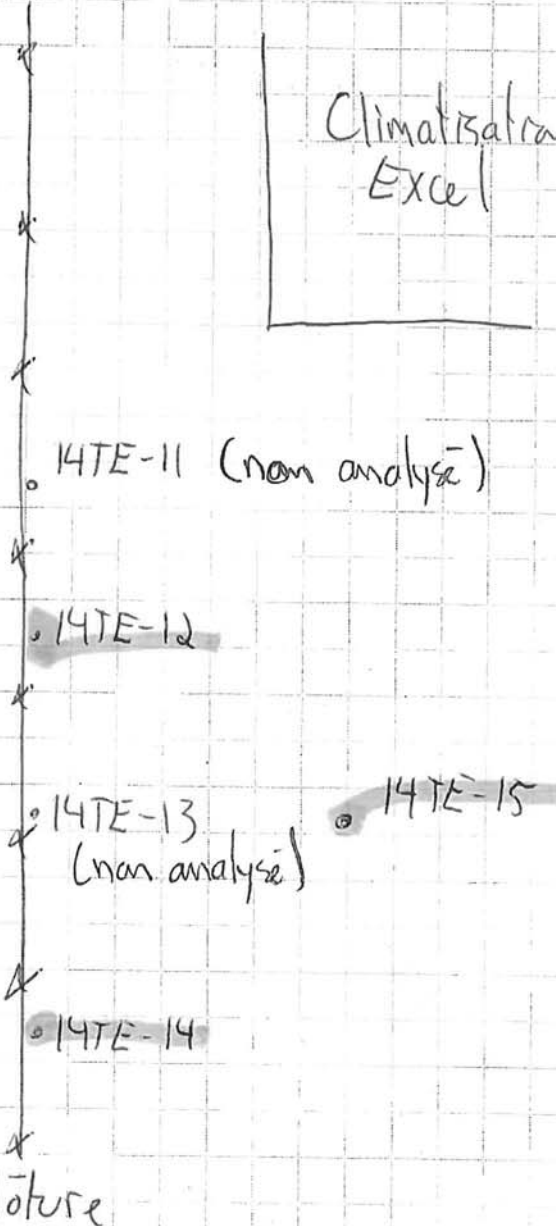 Climatisatio
Excel
14TE-11 (non analysé)
14TE-12
14TE-15
14TE-13
(non analysé)
14TE-14
ôture